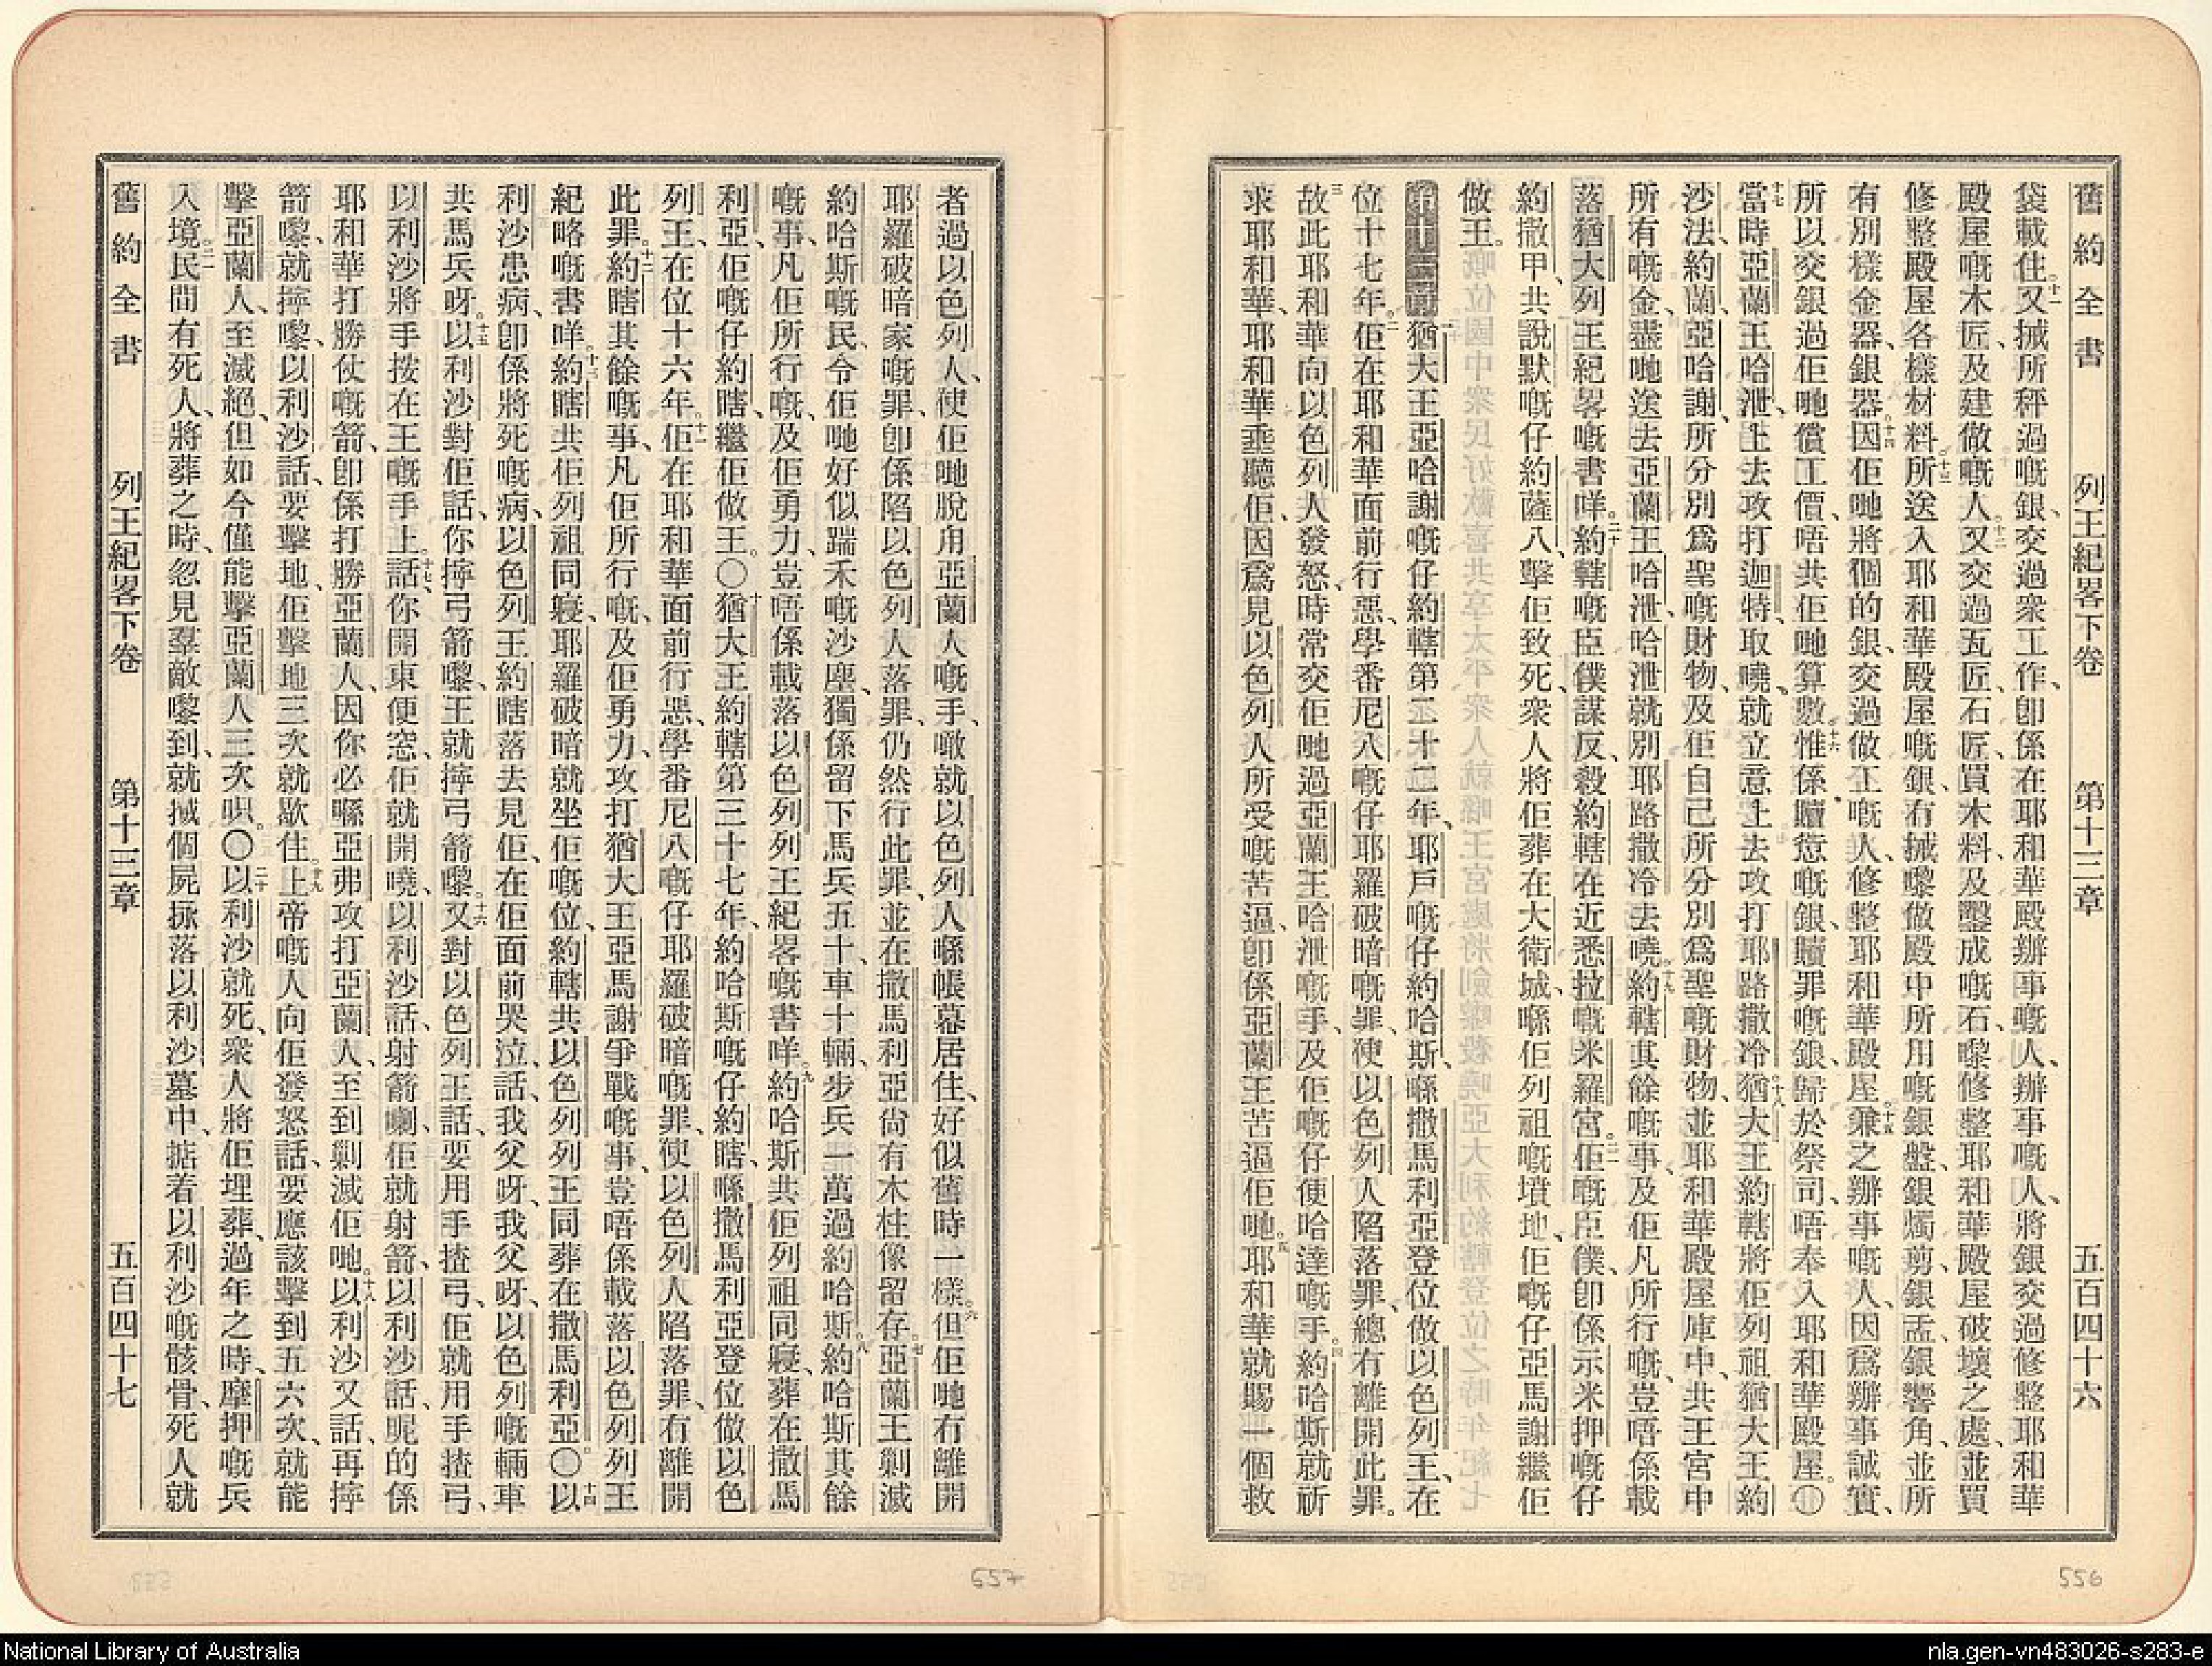 舊約全書 列王紀畧下卷 第十三章 五百四十六
袋載住、十一又搣所秤過嘅銀、交過衆工作、卽係在耶和華殿辦事嘅人、辦事嘅人、將銀交過修整耶和華
殿屋嘅木匠、及建做嘅人、十二又交過瓦匠、石匠、買木料、及鑿成嘅石、嚟修整耶和華殿屋破壞之處、並買
修整殿屋各樣材料。十三所送入耶和華殿屋嘅銀、冇搣嚟做殿中所用嘅銀盤、銀燭剪、銀盂、銀響角、並所
有別樣金器、銀器。十四因佢哋將個的銀、交過做工嘅人、修整耶和華殿屋。十五兼之辦事嘅人、因爲辦事誠實、
所以交銀過佢哋償工價、唔共佢哋算數。十六惟係贖愆嘅銀、贖罪嘅銀、歸於祭司、唔奉入耶和華殿屋。〇
十七當時亞蘭王哈泄上去攻打迦特、取嘵、就立意上去攻打耶路撒冷。十八猶大王約轄將佢列祖猶大王約
沙法、約蘭、亞哈謝、所分別爲聖嘅財物、及佢自己所分別爲聖嘅財物、並耶和華殿屋庫中、共王宮中
所有嘅金、盡哋送去亞蘭王哈泄、哈泄就別耶路撒冷去嘵。十九約轄其餘嘅事、及佢凡所行嘅、豈唔係載
落猶大列王紀畧嘅書咩。二十約轄嘅臣僕謀反、殺約轄在近悉拉嘅米羅宮。二一佢嘅臣僕、卽係示米押嘅仔
約撒甲、共說默嘅仔約薩八、擊佢致死、衆人將佢葬在大衛城、喺佢列祖嘅墳地、佢嘅仔亞馬謝繼佢
做王。
第十三章 一猶大王亞哈謝嘅仔約轄第二十三年、耶戶嘅仔約哈斯、喺撒馬利亞登位做以色列王、在
位十七年。二佢在耶和華面前行惡、學番尼八嘅仔耶羅破暗嘅罪、使以色列人陷落罪、總冇離開此罪。
三故此耶和華向以色列人發怒、時常交佢哋過亞蘭王哈泄嘅手、及佢嘅仔便哈達嘅手。四約哈斯就祈
求耶和華、耶和華垂聽佢、因爲見以色列人所受嘅苦逼、卽係亞蘭王苦逼佢哋。五耶和華就賜一個救
者過以色列人、使佢哋脫甩亞蘭人嘅手、噉就以色列人喺帳幕居住、好似舊時一樣。六但佢哋冇離開
耶羅破暗家嘅罪、卽係陷以色列人落罪、仍然行此罪、並在撒馬利亞尙有木柱像留存。七亞蘭王剿滅
約哈斯嘅民、令佢哋好似踹禾嘅沙塵、獨係留下馬兵五十、車十輛、步兵一萬過約哈斯。八約哈斯其餘
嘅事、凡佢所行嘅、及佢勇力、豈唔係載落以色列列王紀畧嘅書咩。九約哈斯共佢列祖同寢、葬在撒馬
利亞、佢嘅仔約瞎、繼佢做王。〇十猶大王約轄第三十七年、約哈斯嘅仔約瞎、喺撒馬利亞登位做以色
列王、在位十六年。十一佢在耶和華面前行惡、學番尼八嘅仔耶羅破暗嘅罪、使以色列人陷落罪、冇離開
此罪。十二約瞎其餘嘅事、凡佢所行嘅、及佢勇力、攻打猶大王亞馬謝爭戰嘅事、豈唔係載落以色列列王
紀略嘅書咩。十三約瞎共佢列祖同寢、耶羅破暗就坐佢嘅位、約轄共以色列列王同葬在撒馬利亞。〇十四以
利沙患病、卽係將死嘅病、以色列王約瞎落去見佢、在佢面前哭泣、話、我父呀、我父呀、以色列嘅輛車
共馬兵呀。十五以利沙對佢話、你擰弓箭嚟、王就擰弓箭嚟。十六又對以色列王話、要用手揸弓、佢就用手揸弓、
以利沙將手按在王嘅手上。十七話、你開東便窓、佢就開嘵、以利沙話、射箭喇、佢就射箭、以利沙話、呢的係
耶和華打勝仗嘅箭、卽係打勝亞蘭人、因你必喺亞弗攻打亞蘭人、至到剿滅佢哋。十八以利沙又話、再擰
箭嚟、就擰嚟、以利沙話、要擊地、佢擊地三次就歇住。十九上帝嘅人向佢發怒話、要應該擊到五六次、就能
擊亞蘭人、至滅絕、但如今僅能擊亞蘭人三次唄。〇二十以利沙就死、衆人將佢埋葬、過年之時、摩押嘅兵
入境。二一民間有死人、將葬之時、忽見羣敵嚟到、就搣個屍掁落以利沙墓中、掂着以利沙嘅骸骨、死人就
舊約全書 列王紀畧下卷 第十三章 五百四十七
557
556
National Library of Australia
nla.gen-vn483026-s283-e